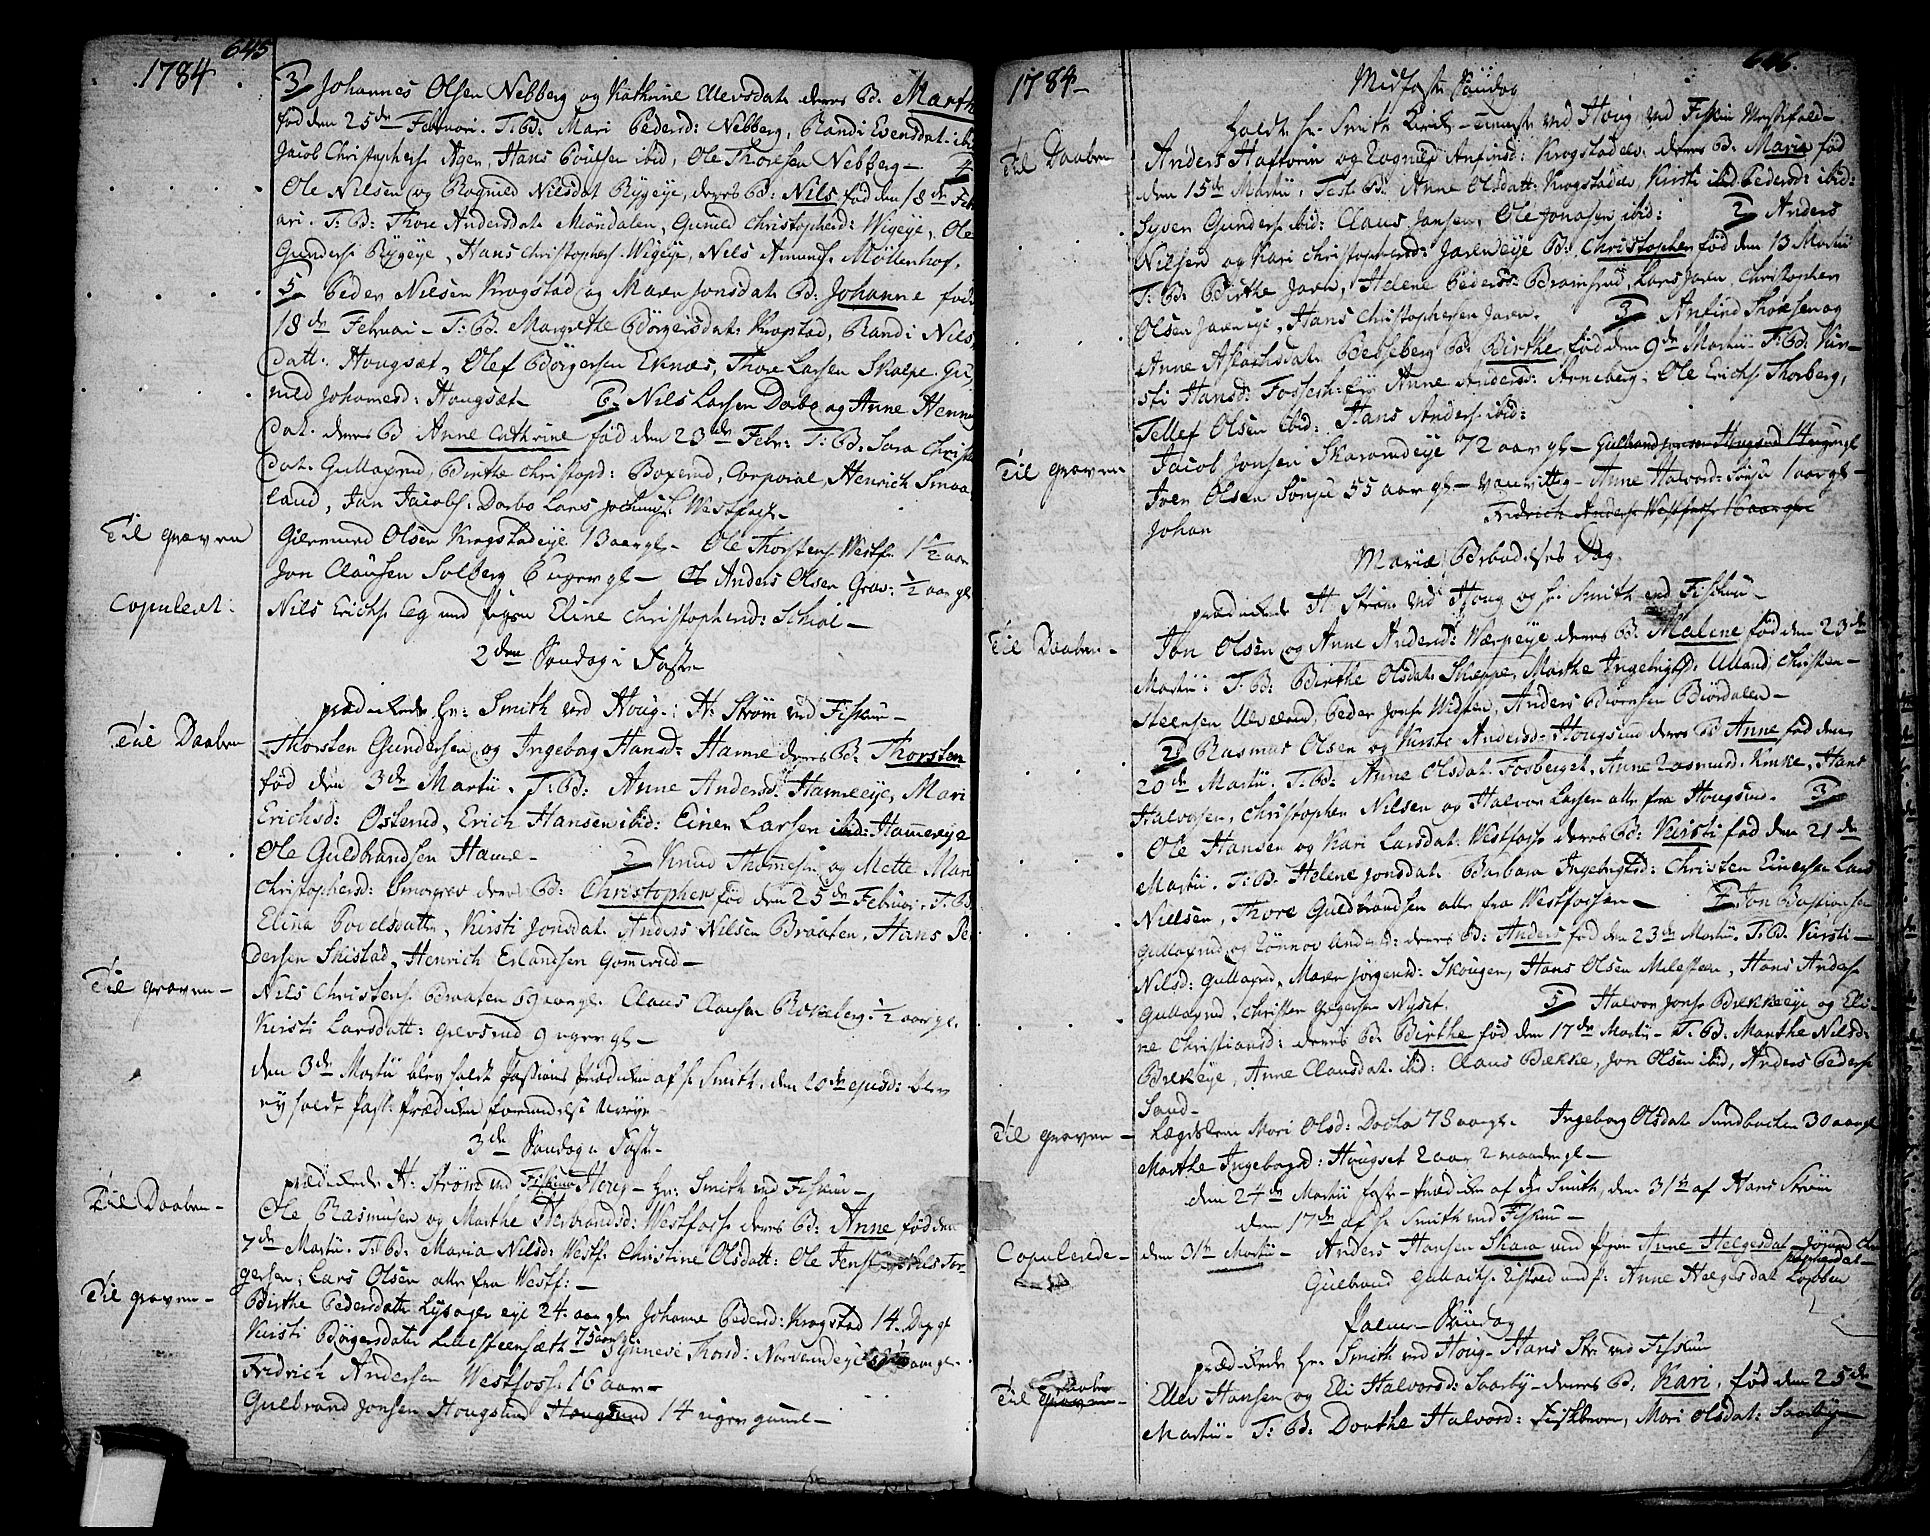 1784 645
3 Johannes Olsen Nebberg og Kathrine Ellevsdat: deres B. Marthe
fød den 25de Februari. T: B. Mari Pedersd: Nebberg, Randi Evensdat: ibid
Jacob Christophers: Ager, Hans Povelsen ibid, Ole Thoresen Nebberg – 4
Ole Nilsen og Ragnild Nilsdat Rygeye, deres B: Nils fød den 18de Febr
ari. T: B: Thore Andersdat Miondalen, Gunild Christophersd: Wigeye, Ole
Gunders: Rygeye, Hans Christophers: Wigeye, Nils Amunds: Möllenhof.
5 Peder Nilsen Krogstad og Maren Jonsdat B: Johanne fød
18de Februari – T: B. Margrethe Börgersdat: Krogstad, Randi Nils
datt: Hougsæt, Olef Börgersen Eknæs, Thore Larsen Skalpe. Gu
nild Johannesd: Hougsæt – 6 Nils Larsen Dorbo og Anne Henri
dat. deres B Anne Cathrine fød den 23de Febr: T: B. Sara Christ
dat. Gullaxrud, Birthe Christopd: Boxerud, Corporal Henrich Smaa
land, Jan Jacobs: Dorbo Lars Jochums: Westfos –
Til Graven
Giermund Olsen Krogstadeye 13 aar gl – Ole Thorstens: Westf: 1 1/2 aar
Jon Clausen Solberg 6 uger gl – Anders Olsen Grav: 1/2 aar gl
Copuleret:
Nils Erichs: Eeg med pigen Eline Christophersd: Schiøl –
2den Søndag i Faste
prædikede Hr: Smith ved Houg: H: Strøm ved Fiskum –
Til Daaben
Thorsten Gundersen og Ingeborg Hansd: Hamre deres B: Thorsten
fød den 3de Martii. T: B: Anne Andersd: Hamreeye, Mari
Erichsd: Østerud, Erich Hansen ibid: Einer Larsen ibid: Hamereye
Ole Guldbrandsen Hamre – 2 Knud Thomesen og Mette Mari
Christophersd: deres B: Christopher fød den 25de Februari. T: B
Elina Povelsdatter, Kirsti Jonsdat. Anders Nilsen Braaten, Hans Pe
dersen Skistad, Henrich Erlandsen Gomerud –
Til Graven –
Nils Christens: Braaten 69 aar gl. Claus Clausen Bokeberg 1/2 aar gl.
Kirsti Larsdatt: 9 uger gl –
den 3de Martii blev holdt Passions Prædiken af hr Smith. den 10de ejusd: blev
ey holdt Pass: Prædiken
3de Søndag i Faste –
prædikede H: Strøm ved Fiskum Houg – Hr: Smith ved Fiskum –
Til Daaben –
Ole Rasmusen og Marthe Herbrandsd: Westfos deres B: Anne fød den
7de Martii. T: B: Maria Nilsd: Westf: Christine Olsdatt: Ole Jens Nils Tor
gersen, Lars Olsen alle fra Westf: –
Til Graven –
Birthe Pedersdatt: eye 24. aar gl Johanne Pedersd: Krogstad 14. Dage gl
Kirsti Børgersdatter 75 aar gl. Synneve Thorsd: aar gl.
Fridrich Andersen Westfoss: 16 aar –
Gulbrand Jonsen Hougsund Hougsund 14 uger gamel –
1784 – 646.
Midfaste Søndag
holdt hr Smith ved Houg, ved Fiskum
Til Daaben
Anders Halvorsen og Ragnild Anfinsd: Krogstadelv. deres B. Maria fød
den 15de Martii. Test: B. Anne Olsdatt: Krogstadelv, Kirsti ibid Pedersd: ibid:
Syver Gunders: ibid: Claus Jansen, Ole Jonasen ibid: 2 Anders
Nilsen og Kari Christophersd: Jareneye B: Christopher fød den 13 Martii
T: B: Birthe Jaren, Helene Pedersd: Lars Jaren, Christopher
Olsen Jareneye, Hans Christophersen Jaren. 3 Anfind Thorsen og
Anne Aslachsdat Besseberg B: Birthe fød den 9de Martii – T: B: Kir –
sti Hansd: Anne Andersd: Arneberg. Ole Erichs: Thorberg,
Tellef Olsen ibid: Hans Anders: ibid:
Til Graven
Jacob Jonsen Skarandeye 72 aar gl – Gulbrand Jonsen Hougsund 14 uger gl
Iver Olsen Sønju 55 aar gl – vanvittig – Anne Halvord: Sønju 1 aar gl –
Johan Fridrich Anders: Westfoss: 16 aar gl
Mariæ Bebudelses Dag
prædikede H Strøm ved Houg og hr: Smith ved Fiskum –
Til Daaben –
Jon Olsen og Anne Andersd: Værpeye deres B: Malene fød den 23de
Martii: T: B: Birthe Olsdat: Skeppe, Marthe Ingebrigtsd: Ulland, Christen
steensen Ulveland, Peder Jons: Anders Biörnsen Biördalen –
2 Rasmus Olsen og Kirsti Andersd: Hougsund deres B Anne fød den
20de Martii. T: B: Anne Olsdat. Anne Rasmusd. Hans
Halvorsen, Christopher Nilsen og Halvor Larsen alle fra Hougsund. 3
Ole Hansen og Kari Larsdat: Westfoss deres B: Kirsti fød den 21de
Martii. T: B. Helene Jonsdat. Barbara Ingebrigtsd: Christen Einersen Lars
Nielsen, Thore Guldbrandsen alle fra Westfossen – 4 Jon
Gullaxrud og Rønnov Andersd: deres B: Anders fød den 23de Martii. T: B. Kirsti –
Nilsd: Gullaxrud, Maren Jörgensd: Skougen, Hans Olsen Milesteen, Hans Anders:
Gullaxrud, Christen Nyset. 5 Halvor Jons: Bekkeeye og Eli –
ne Christiansd: deres B. Birthe fød den 17de Martii – T: B: Marthe Nilsd:
Brekeye, Anne Clausdat. ibid: Claus Bække, Jon Olsen ibid, Anders Peders:
Sand –
Til Graven –
Mari Olsd: Docka 78 aar gl. Ingeborg Olsdat Sundbacken 30 aar gl
Marthe Ingeborgsd: Hougset 2 aar 2 maaneder gl –
den 24de Martii faste-Prædiken af hr Smith, den 31te af Hans Strøm
den 17de af hr Smith ved Fiskum –
Copulerede –
den 31te Martii – Anders Hansen Skara med pigen Anne Helgesdat
Gulbrand med p: Anne Helgesdat
Palme-Søndag
prædikede Hr: Smith ved Houg – Hans Str: ved Fiskum
Til Graven Daaben
Ellev Hansen og Eli Halvorsd: Saasby – deres B: Kari, fød den 25de
Martii – T: B. Dorthe Halvord: Mari Olsdat: Saasby –